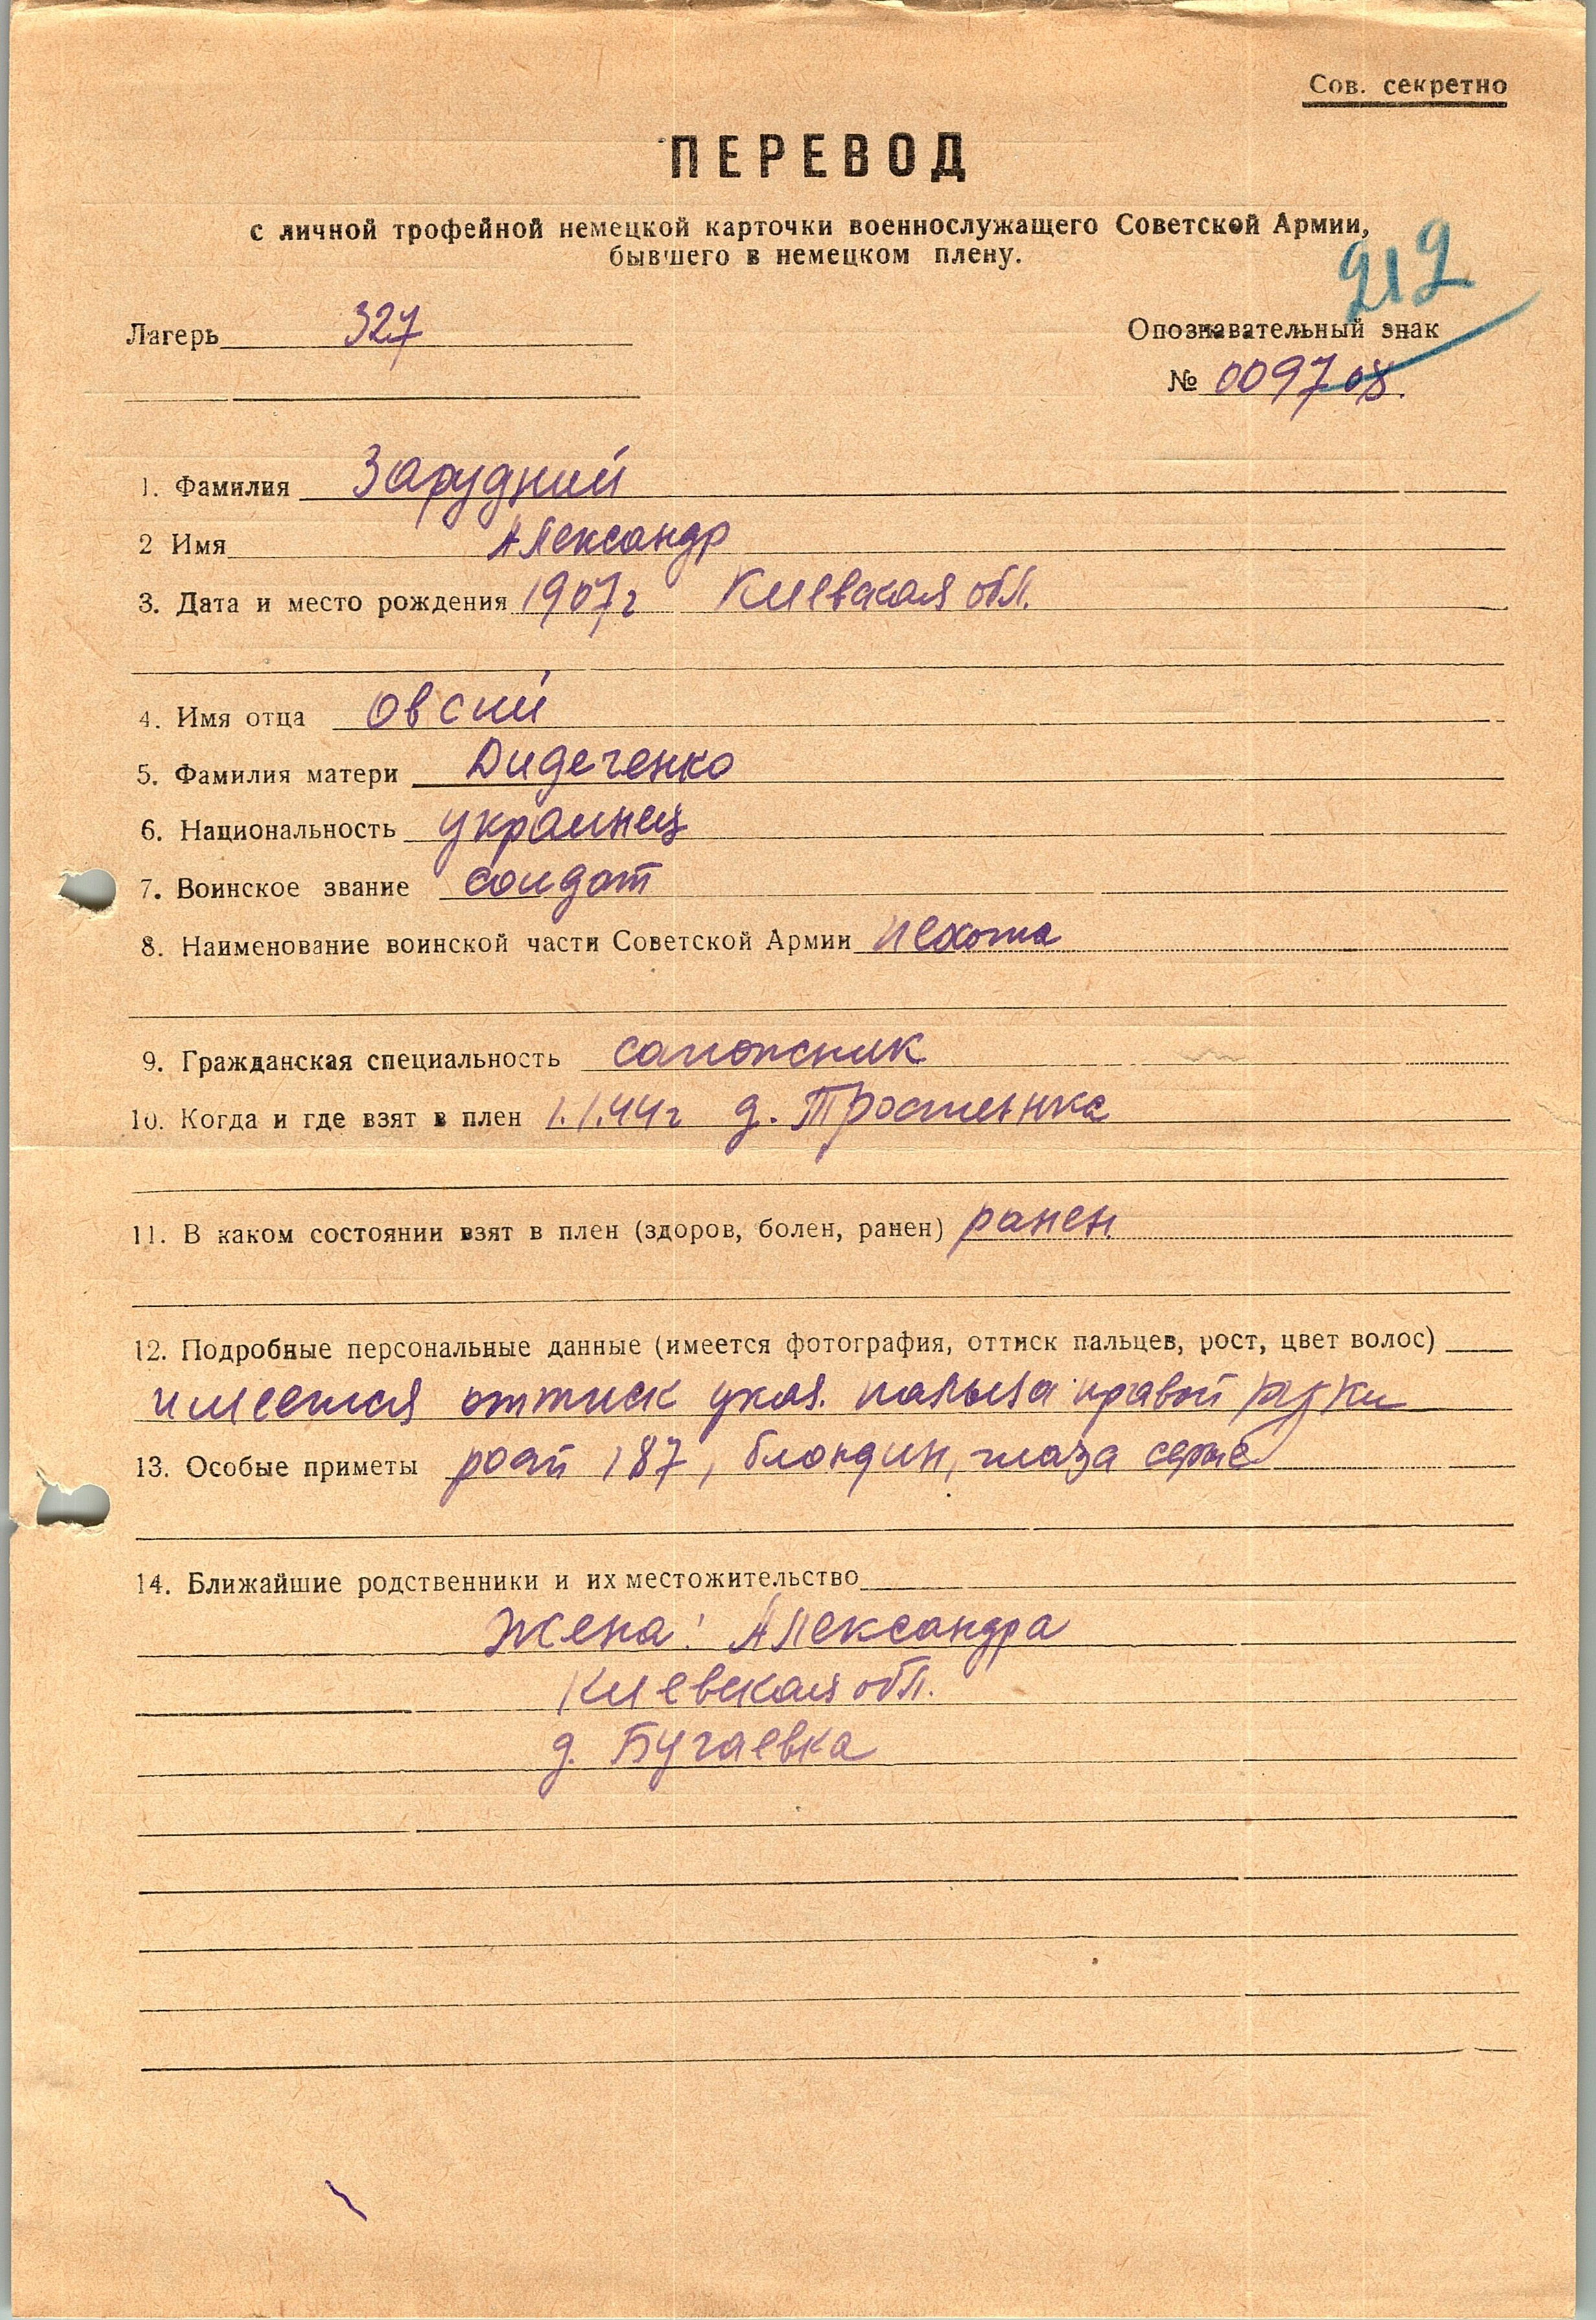 Сов. секретно
ПЕРЕВОД
с личной трофейной немецкой карточки военнослужащего Советской Армии,
бывшего в немецком плену.
212
Лагерь 327
Опознавательный знак
№ 009708.
1. Фамилия Зарудний
2 Имя Александр
3. Дата и место рождения 1907г Киевская обл.
4. Имя отца Овсий
5. Фамилия матери Дидеченко
6. Национальность украинец
7. Воинское звание солдат
8. Наименование воинской части Советской Армии пехота
9. Гражданская специальность сапожник
10. Когда и где взят в плен 1.1.44г д. Тростенка
11. В каком состоянии взят в плен (здоров, болен, ранен) ранен.
12. Подробные персональные данные (имеется фотография, оттиск пальцев, рост, цвет волос)
имеется оттиск указ. пальца правой руки
13. Особые приметы рост 187, блондин, глаза серые
14. Ближайшие родственники и их местожительство
Жена: Александра
Киевская обл.
д. Бугаевка